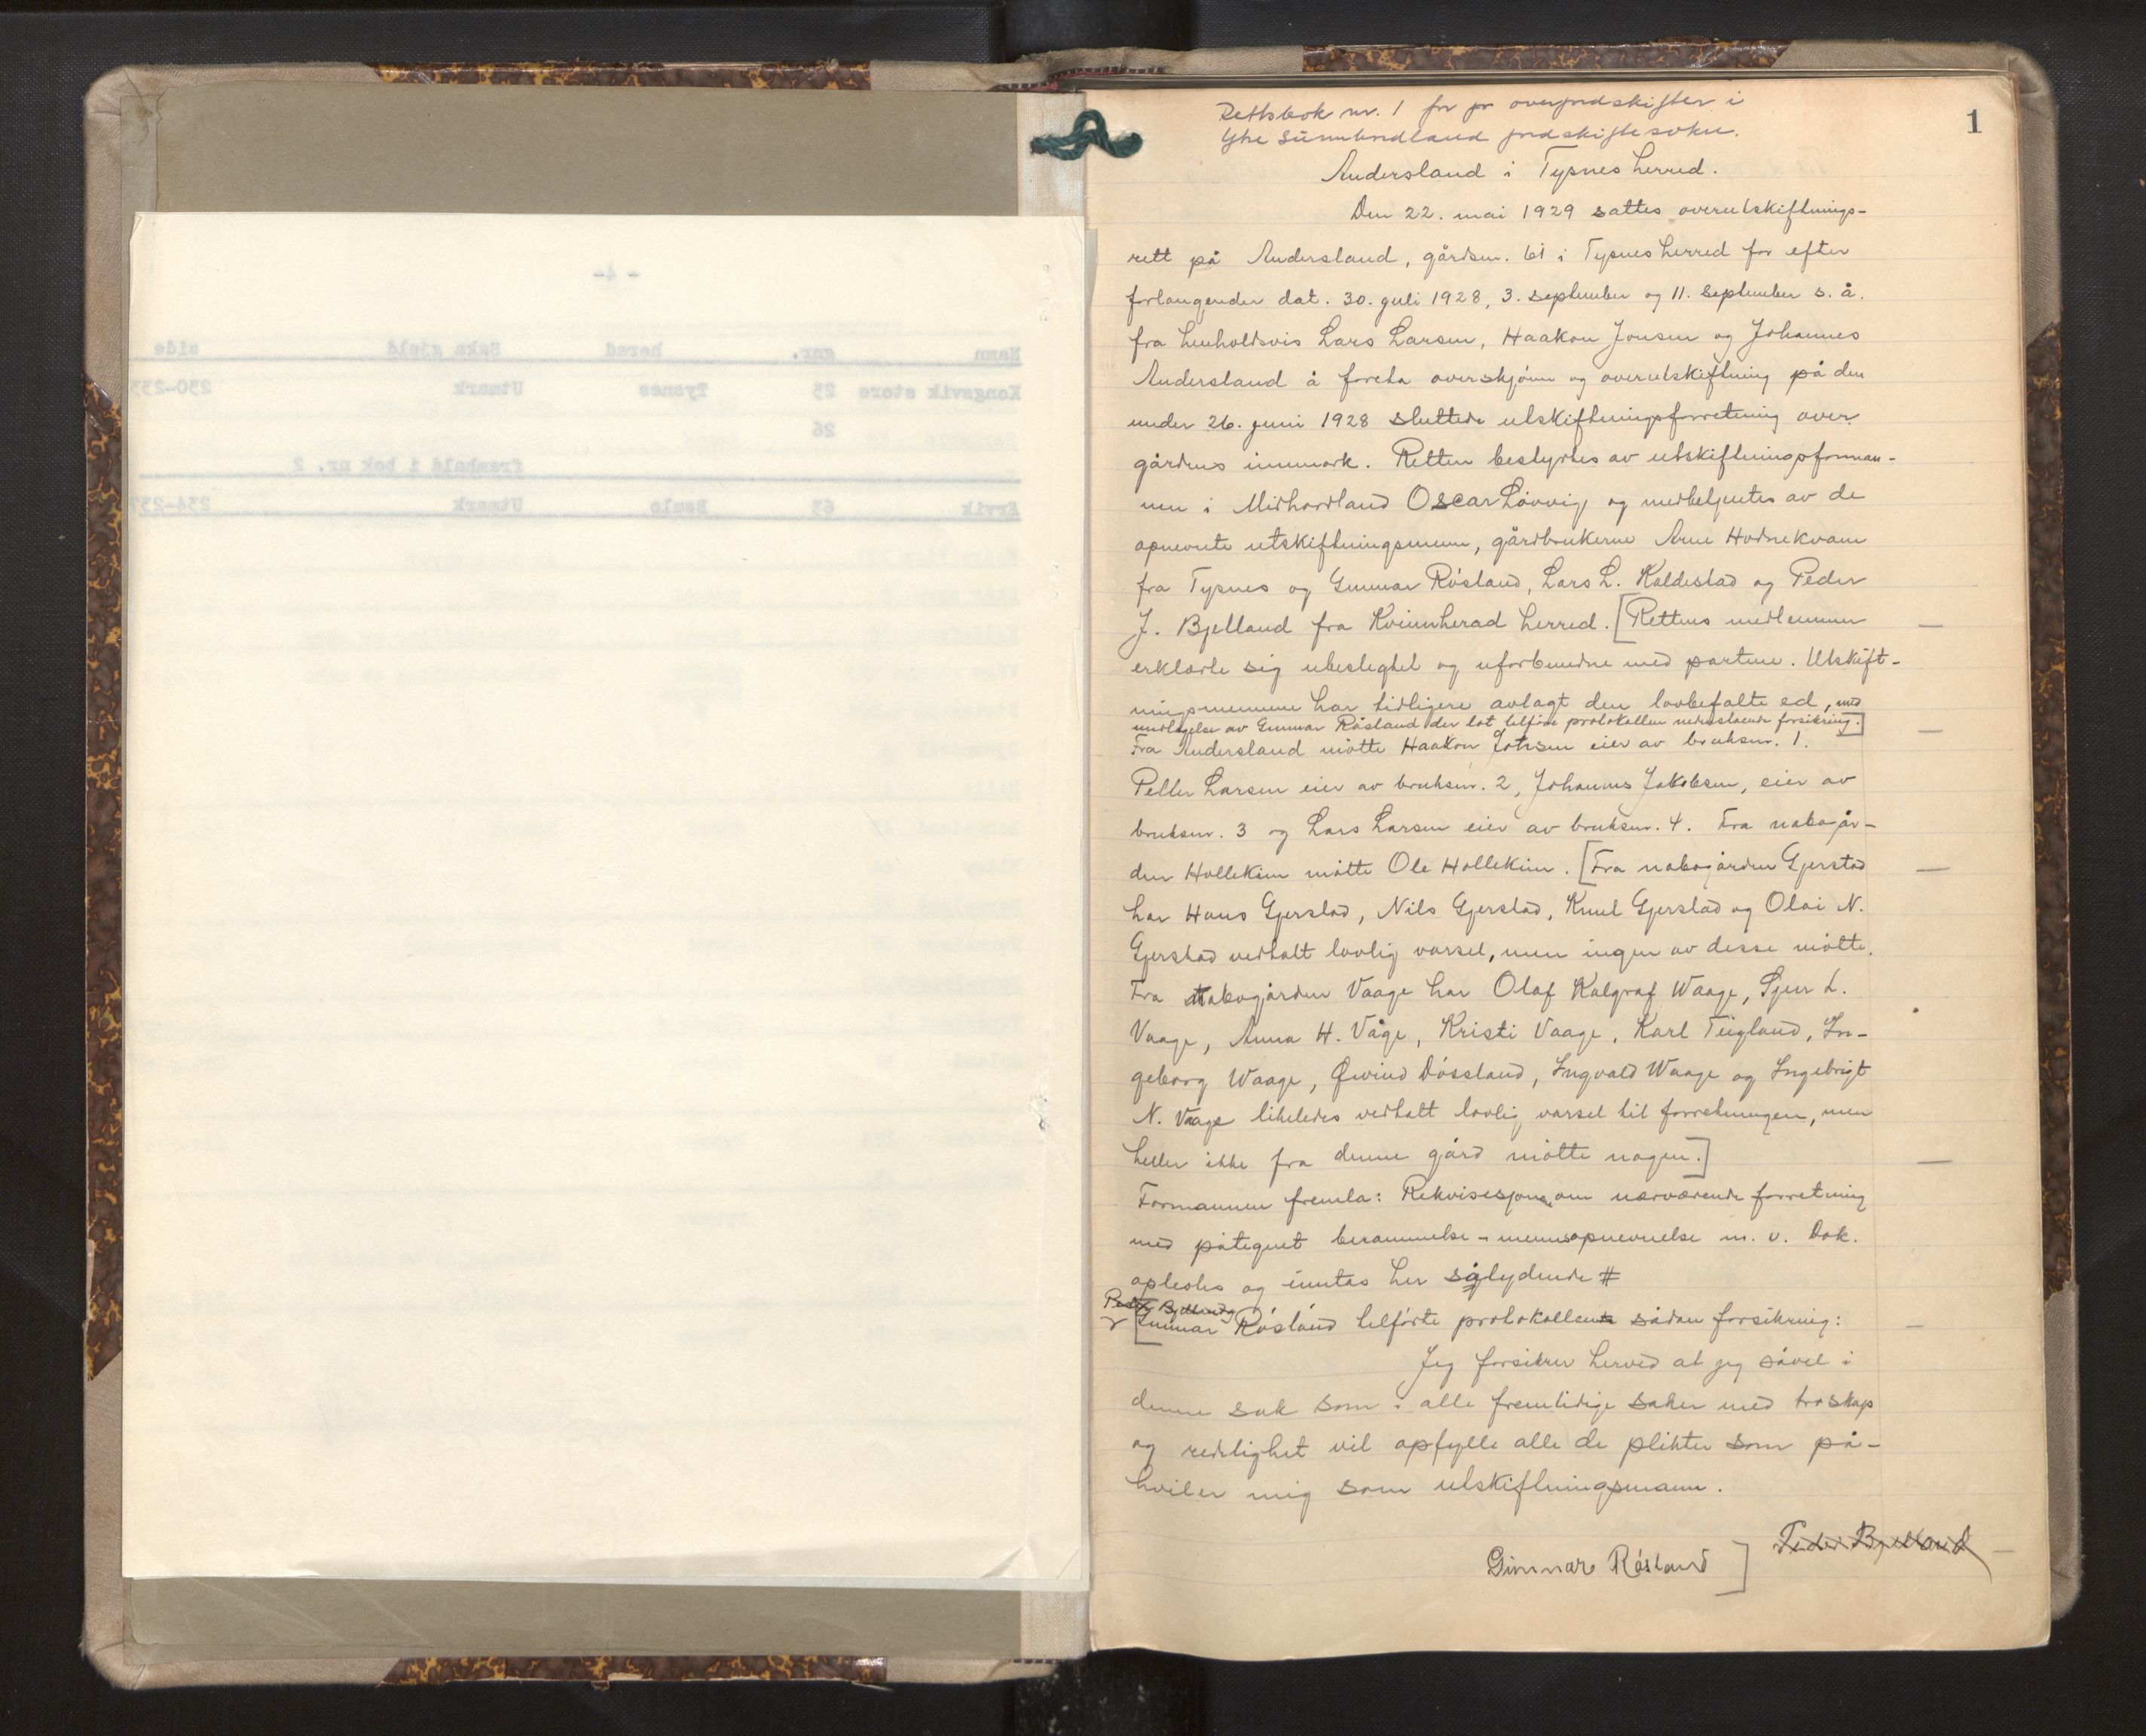 1
Rettsbok nr. 1 for jo overjordskifter i
Ytre Sunnhordland jordskiftesokn.
Andersland i Tysnes herred.
Den 22. mai 1929 sattes overutskiftnings-
rett på Andersland, gårdsnr. 61 i Tysnes herred for efter
forlangender dat. 30. juli 1928, 3. september og 11. september s. å.
fra henholdsvis Lars Larsen, Haakon Jonsen og Johannes
Andersland å foreta overskjønn og overutskiftning på den
under 26. juni 1928 sluttede utskiftningsforretning over
gårdens innmark. Retten bestyrtes av utskiftningsforman-
nen i Midhordland Oscar Løvvig og medbetjentes av de
opnevnte utskiftningsmenn, gårdbrukerne Arne Hodnekvam
fra Tysnes og Gunnar Røsland, Lars L. Kaldestad og Peder
J. Bjelland fra Kvinnherad herred. [Rettens medlemmer
erklærte sig ubeslegtet og uforbundne med partene. Utskift-
ningsmennene har tidligere avlagt den lovbefalte ed, med
undtagelse av Gunnar Røsland der lot tilføre protokollen nedenstående forsikring.]
Fra Andersland møtte Haakon Johnsen eier av bruksnr. 1.
Petter Larsen eier av bruksnr. 2, Johannes Jakobsen, eier av
bruksnr. 3 og Lars Larsen eier av bruksnr. 4. Fra nabogår-
den Hollekim møtte Ole Hollekim. [Fra nabogården Gjerstad
har Hans Gjerstad, Nils Gjerstad, Knut Gjerstad og Olai N.
Gjerstad vedtatt lovlig varsel, men ingen av desse møtte.
Fra nabogården Vaage har Olaf Kalgraf Waage, Sjur L.
Vaage, Anna H. Våge, Kristi Vaage, Karl Teigland, In-
geborg Waage, Øivind Døssland, Ingvald Waage og Ingebrigt
N. Vaage likeledes vedtatt lovlig varsel til forretningen, men
heller ikke fra denne gård møtte nogen.]
Formannen fremla: Rekvisisjone om nærværende forretning
med påtegnet berammelse - mennsopnevnelse m. v. Dok.
oplestes og inntas her sålydende #
Peder Bjelland og
[Gunnar Røsland tilførte protokollen sådan forsikring:
Jeg forsikrer herved at jeg såvel i
denne sak som i alle fremtidige saker med troskap
og redelighet vil opfylle alle de plikter som på-
hviler mig som utskiftningsmann.
Gunnar Røsland] Peder Bjelland
- 4 -
Namn gnr. herad Saka gjeld side
Kongsvik store 25 Tysnes Utmark
26
framhald i bok nr. 2
Ervik 63 Bømlo Utmark